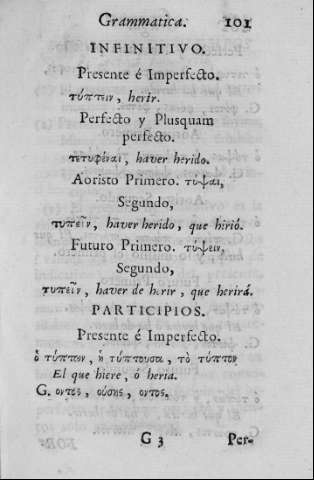 Grammatica. 101
INFINITIVO.
Presente é Imperfecto.
τύπτειν, herir.
Perfecto y Plusquam
perfecto.
τετυφέναι, haver herido.
Aoristo Primero. τυψαι,
Segundo,
τυπεῖν, haver herido, que hirió.
Futuro Primero. τύψειν,
Segundo,
τυπεῖν, haver de herir, que herirá.
PARTICIPIOS.
Presente é Imperfecto.
ὁ τύπτων, ἡ τύπτουσα, τὸ τύπτον
El que hiere, ó heria.
G. οντος, ούσης, οντος.
G 3 Per-